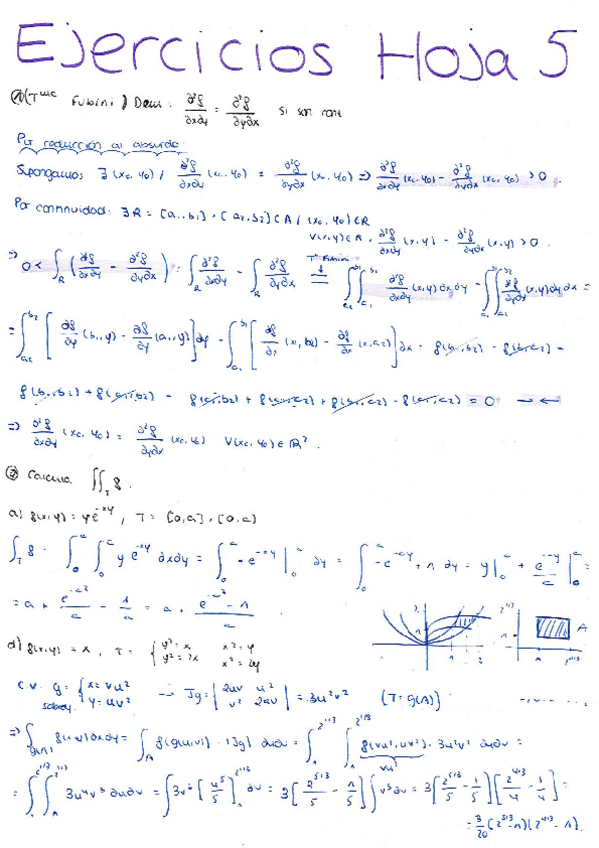 Ejercicios Hoja 5
① (T^ma Fubini) Dem: ∂²f/∂x∂y = ∂²f/∂y∂x si son cont
Por reducción al absurdo
Supongamos ∃ (x₀,y₀) / ∂²f/∂x∂y (x₀,y₀) = ∂²f/∂y∂x (x₀,y₀) ⇒ ∂²f/∂x∂y (x₀,y₀) - ∂²f/∂y∂x (x₀,y₀) > 0
Por continuidad: ∃ R = [a₁,b₁] × [a₂,b₂] ⊂ A / (x₀,y₀) ∈ R
∀(x,y) ∈ R, ∂²f/∂x∂y (x,y) - ∂²f/∂y∂x (x,y) > 0.
⇒ 0 < ∫_R (∂²f/∂x∂y - ∂²f/∂y∂x) = ∫_R ∂²f/∂x∂y - ∫_R ∂²f/∂y∂x = T^ma Fubini ∫∫ ∂²f/∂x∂y (x,y) dx dy - ∫∫ ∂²f/∂y∂x (x,y) dy dx =
= ∫_{a₂}^{b₂} [∂f/∂y (b₁,y) - ∂f/∂y (a₁,y)] dy - ∫_{a₁}^{b₁} [∂f/∂x (x,b₂) - ∂f/∂x (x,a₂)] dx = f(b₁,b₂) - f(b₁,a₂) -
f(a₁,b₂) + f(a₁,a₂) - f(b₁,b₂) + f(a₁,b₂) + f(b₁,a₂) - f(a₁,a₂) = 0 →←
⇒ ∂²f/∂x∂y (x₀,y₀) = ∂²f/∂y∂x (x₀,y₀) ∀(x₀,y₀) ∈ ℝ².
② Calcula ∬_T f.
a) f(x,y) = y e^{-xy}, T = [0,a] × [0,c]
∫_T f = ∫_0^c ∫_0^c y e^{-xy} dx dy = ∫_0^c -e^{-xy} |_0^c dy = ∫_0^c -e^{-cy} + 1 dy = y|_0^c + e^{-cy}/c |_0^c =
= a + e^{-c²}/c - 1/a = a + (e^{-c²} - 1)/c.
d) f(x,y) = x, T = { y² = x x² = y
y² = 2x x² = 2y
A
c.v. g = { x = vu²
y = uv² → Jg = |2uv u²; v² 2uv| = 3u²v² (T = g(A))
sobrey.
⇒ ∫_{g(A)} f(x,y) dx dy = ∫_A f(g(u,v)) · |Jg| du dv = ∫_1^{2^{1/3}} ∫_1^{2^{1/3}} f(vu², uv²) · 3u²v² du dv =
vu²
= ∫_1^{2^{1/3}} ∫_1^{2^{1/3}} 3u⁴v³ du dv = ∫ 3v³ [u⁵/5]_1^{2^{1/3}} dv = 3 [2^{5/3}/5 - 1/5] ∫ v³ dv = 3 [2^{5/3}/5 - 1/5] [2^{4/3}/4 - 1/4] =
= 3/20 (2^{5/3} - 1)(2^{4/3} - 1)